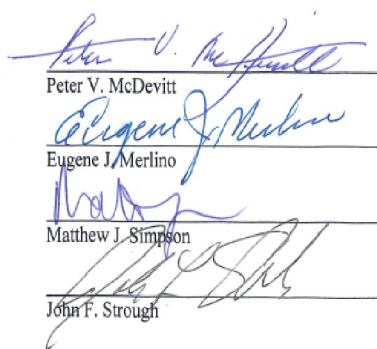 Peter V. McDevitt
Peter V. McDevitt
Eugene J. Merlino
Eugene J. Merlino
Matthew J. Simpson
John F. Strough